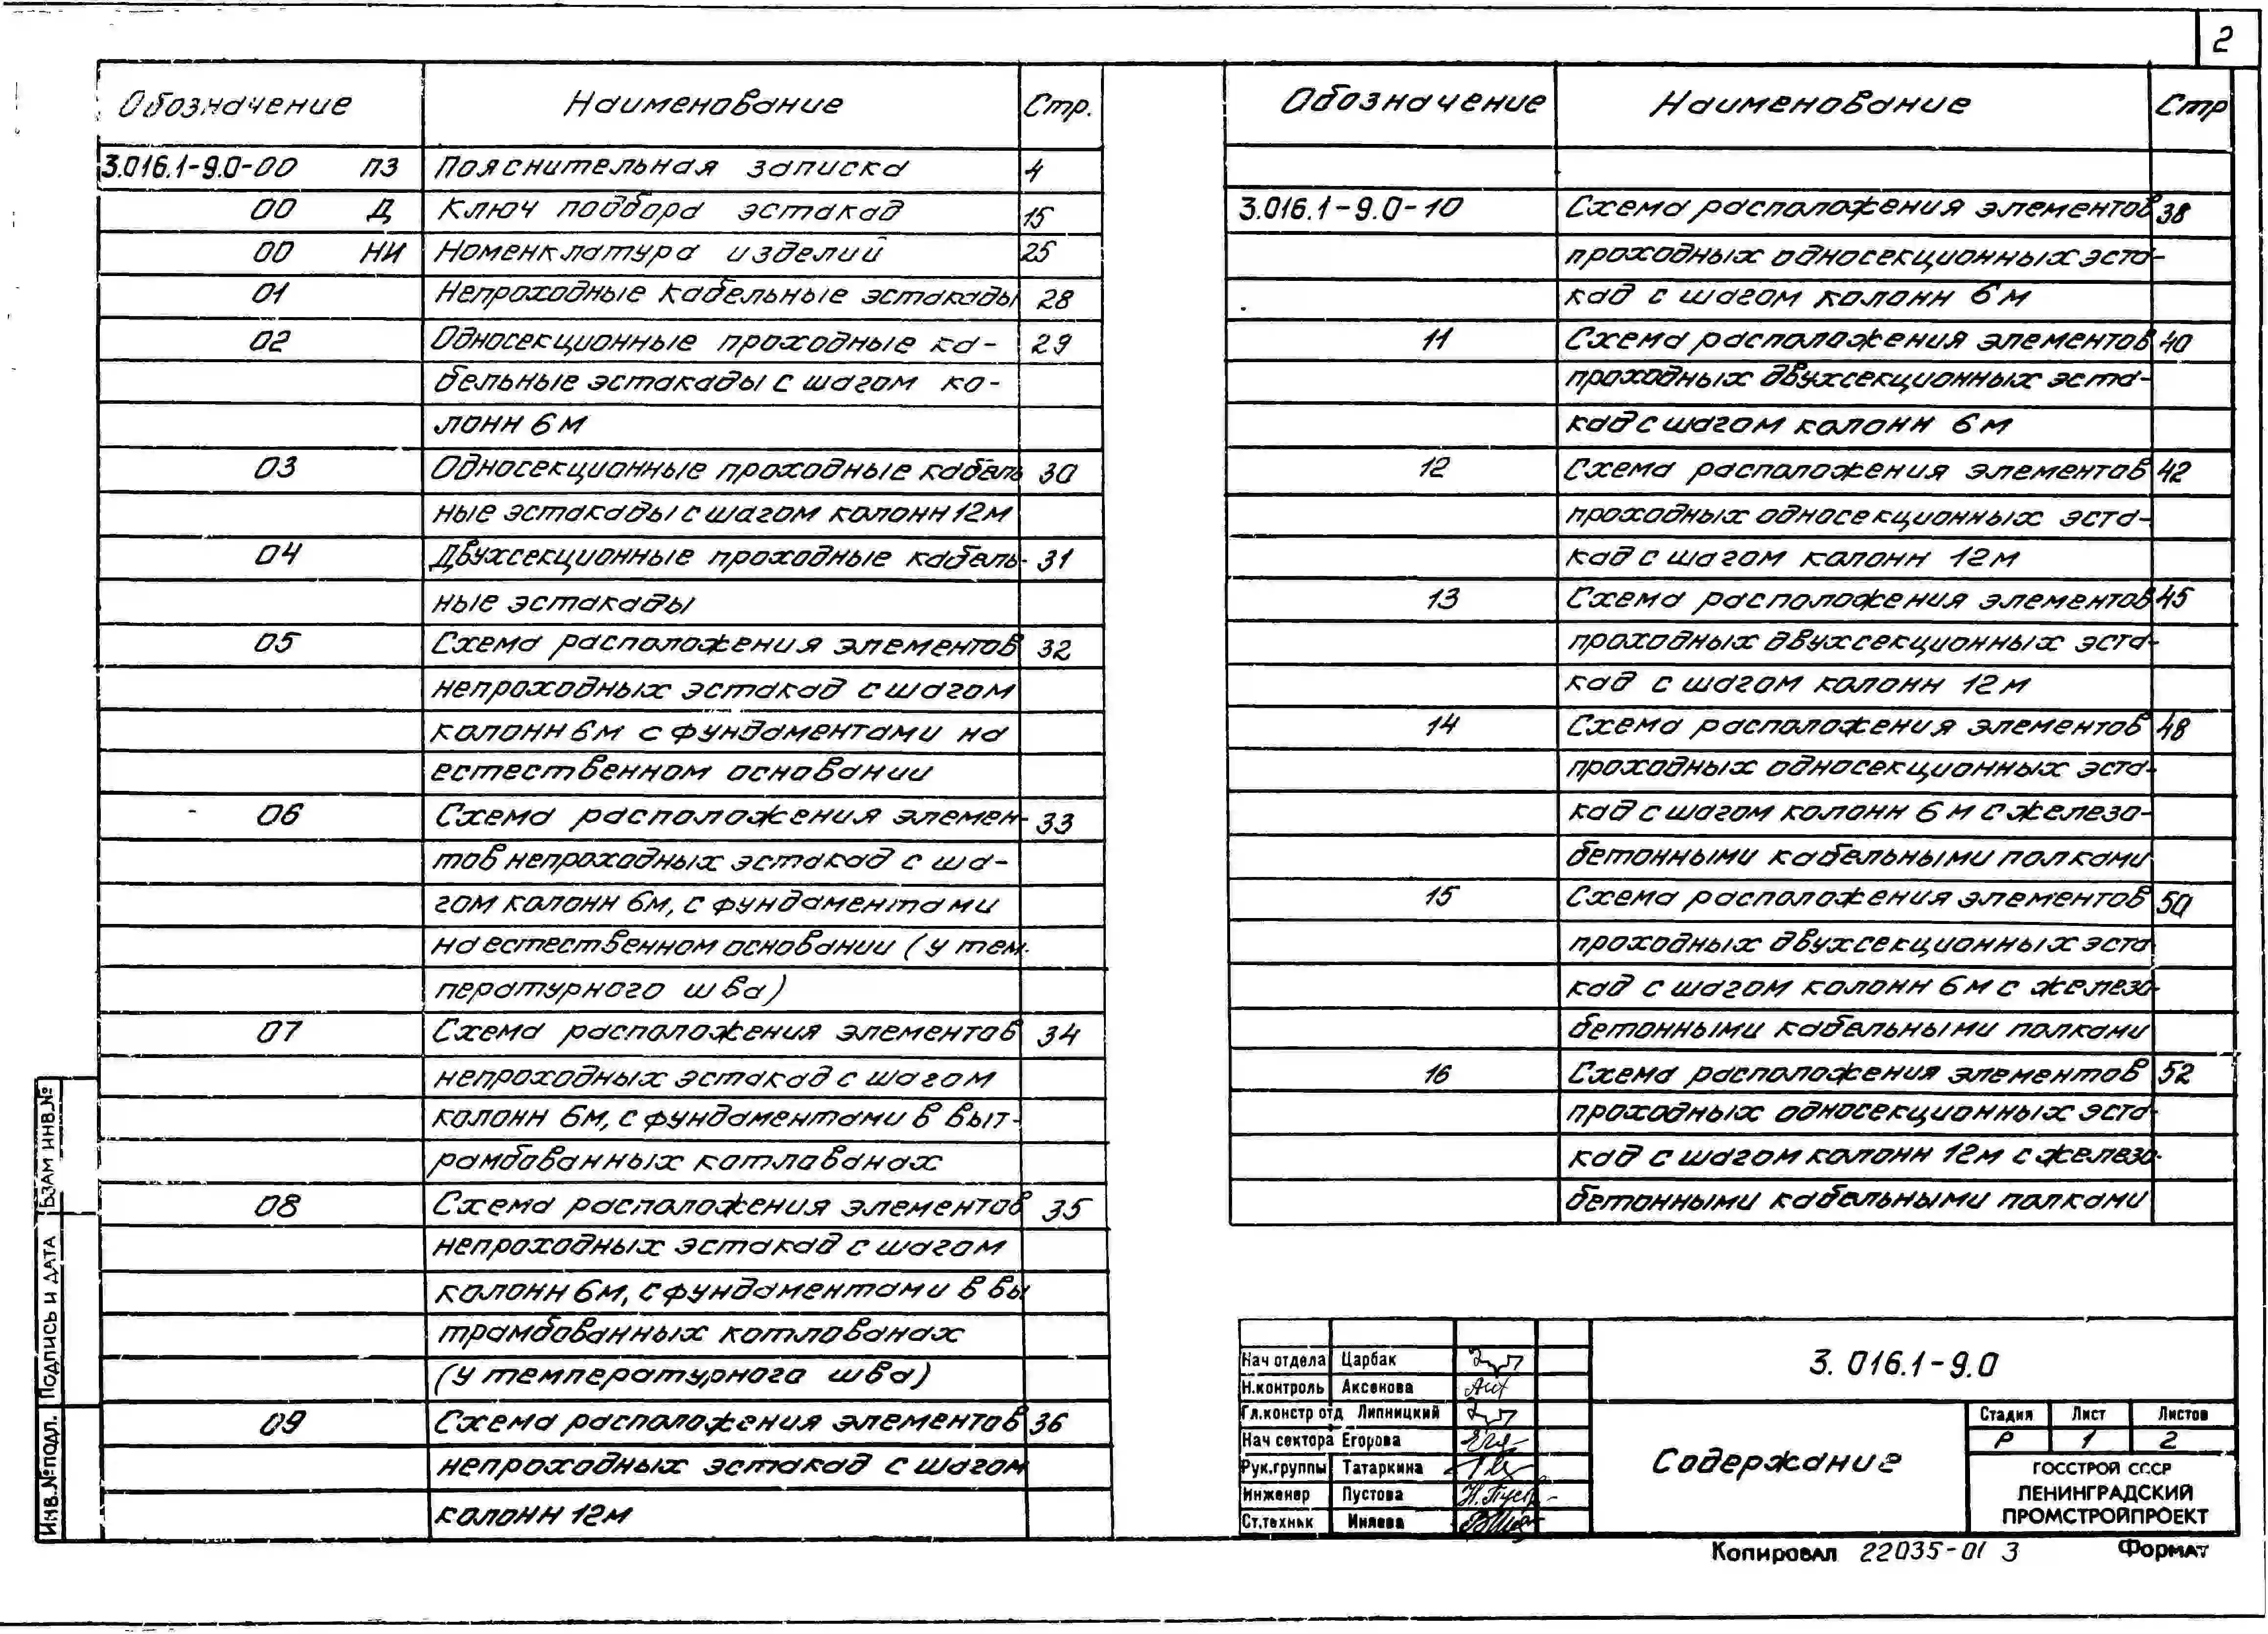 2
Обозначение Наименование Стр.
3.016.1-9.0-00 ПЗ Пояснительная записка 4
00 Д Ключ подбора эстакад 15
00 НИ Номенклатура изделий 25
01 Непроходные кабельные эстакады 28
02 Односекционные проходные ка- 29
бельные эстакады с шагом ко-
лонн 6 м
03 Односекционные проходные кабель 30
ные эстакады с шагом колонн 12 м
04 Двухсекционные проходные кабель- 31
ные эстакады
05 Схема расположения элементов 32
непроходных эстакад с шагом
колонн 6м с фундаментами на
естественном основании
06 Схема расположения элемен- 33
тов непроходных эстакад с ша-
гом колонн 6м, с фундаментами
на естественном основании (у тем-
пературного шва)
07 Схема расположения элементов 34
непроходных эстакад с шагом
колонн 6м, с фундаментами в выт-
рамбованных котлованах
08 Схема расположения элементов 35
непроходных эстакад с шагом
колонн 6м, с фундаментами в вы
трамбованных котлованах
(у температурного шва)
09 Схема расположения элементов 36
непроходных эстакад с шагом
колонн 12м
Обозначение Наименование Стр
3.016.1-9.0-10 Схема расположения элементов 38
проходных односекционных эста-
кад с шагом колонн 6 м
11 Схема расположения элементов 40
проходных двухсекционных эста-
кад с шагом колонн 6 м
12 Схема расположения элементов 42
проходных односекционных эста-
кад с шагом колонн 12м
13 Схема расположения элементов 45
проходных двухсекционных эста-
кад с шагом колонн 12м
14 Схема расположения элементов 48
проходных односекционных эста-
кад с шагом колонн 6 м с железо-
бетонными кабельными полками
15 Схема расположения элементов 50
проходных двухсекционных эста
кад с шагом колонн 6м с железо-
бетонными кабельными полками
16 Схема расположения элементов 52
проходных односекционных эста-
кад с шагом колонн 12м с железо-
бетонными кабельными полками
Взам инв.№
Подпись и дата
Инв.№подл.
Нач отдела Царбак
Н.контроль Аксенова
Гл.констр отд Липницкий
Нач сектора Егорова
Рук.группы Татаркина
Инженер Пустова
Ст.техник
3.016.1-9.0
Содержание
Стадия Лист Листов
Р 1 2
ГОССТРОЙ СССР
ЛЕНИНГРАДСКИЙ
ПРОМСТРОЙПРОЕКТ
Копировал 22035-01 3 Формат